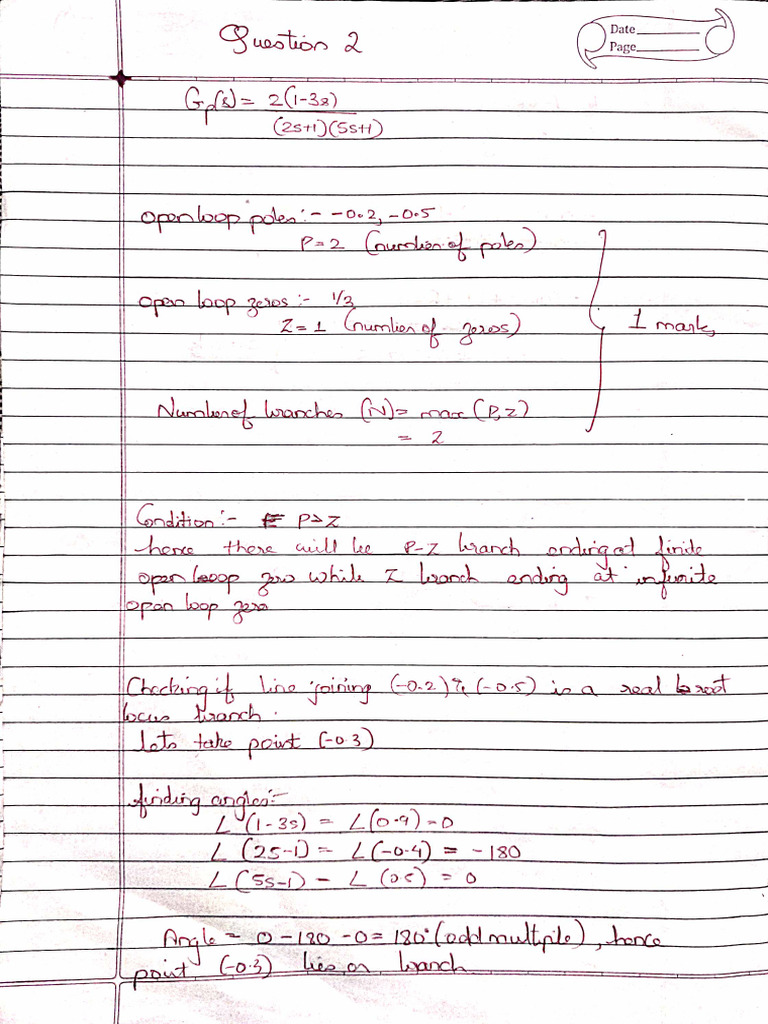 Question 2
Date
Page
Gp(s) = 2(1-3s)
(2s+1)(5s+1)
open loop poles:- -0.2, -0.5
P=2 (number of poles)
open loop zeros:- 1/3
Z=1 (number of zeros)
1 mark,
Number of branches (N) = max(P,Z)
= 2
Condition:- P>Z
hence there will be P-Z branch ending at finite
open loop zero while Z branch ending at infinite
open loop zero
Checking if line joining (-0.2) & (-0.5) is a real root
locus branch.
lets take point (-0.3)
finding angles:-
∠(1-3s) = ∠(0.9) = 0
∠(2s-1) = ∠(-0.4) = -180
∠(5s-1) = ∠(0.5) = 0
Angle = 0-180-0 = 180° (odd multiple), hence
point (-0.3) lies on branch